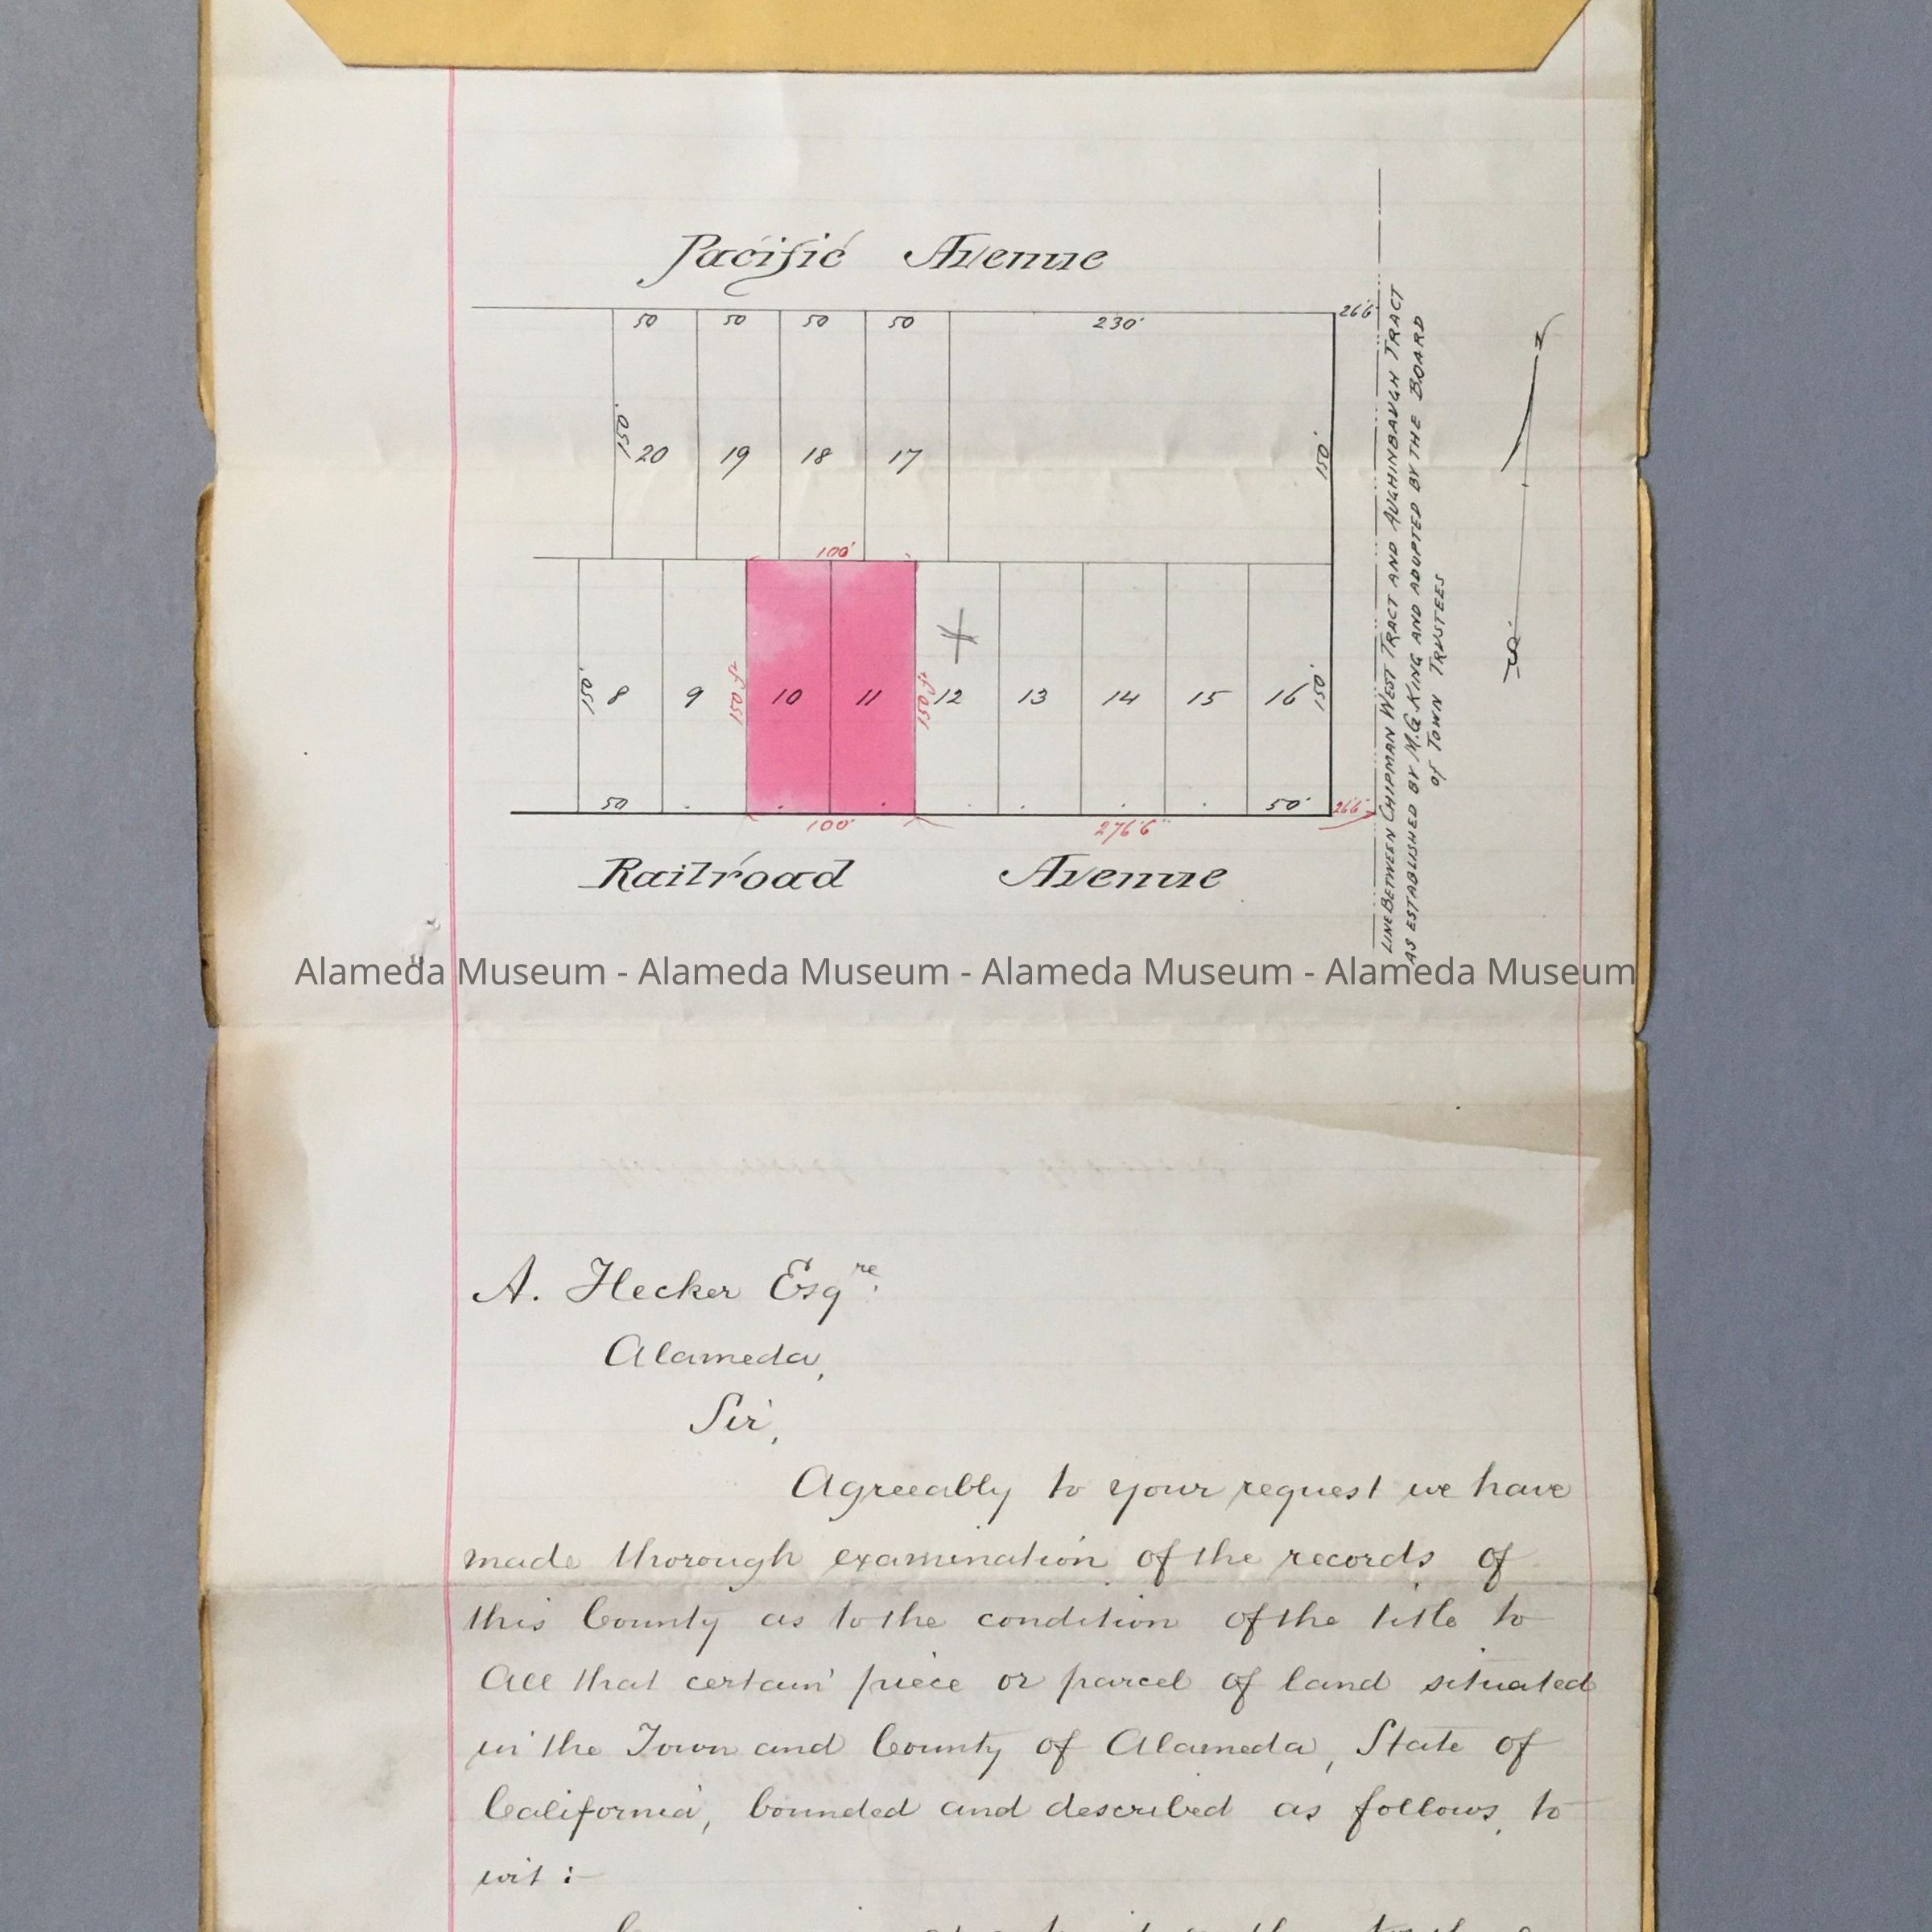 Pacific Avenue
50 50 50 50 230' 26'6"
150' 20 19 18 17 150'
N
100'
150' 8 9 150 ft 10 11 150 ft 12 13 14 15 16 150'
50 50' 26'6"
100' 276'6"
S.
Railroad Avenue
LINE BETWEEN CHIPMAN WEST TRACT AND AUGHINBAUGH TRACT
AS ESTABLISHED BY M.G. KING AND ADOPTED BY THE BOARD
of TOWN TRUSTEES
Alameda Museum - Alameda Museum - Alameda Museum - Alameda Museum
A. Hecker Esqre.
Alameda,
Sir,
Agreeably to your request we have
made thorough examination of the records of
this County as to the condition of the title to
All that certain piece or parcel of land situated
in the Town and County of Alameda, State of
California, bounded and described as follows, to
wit :-